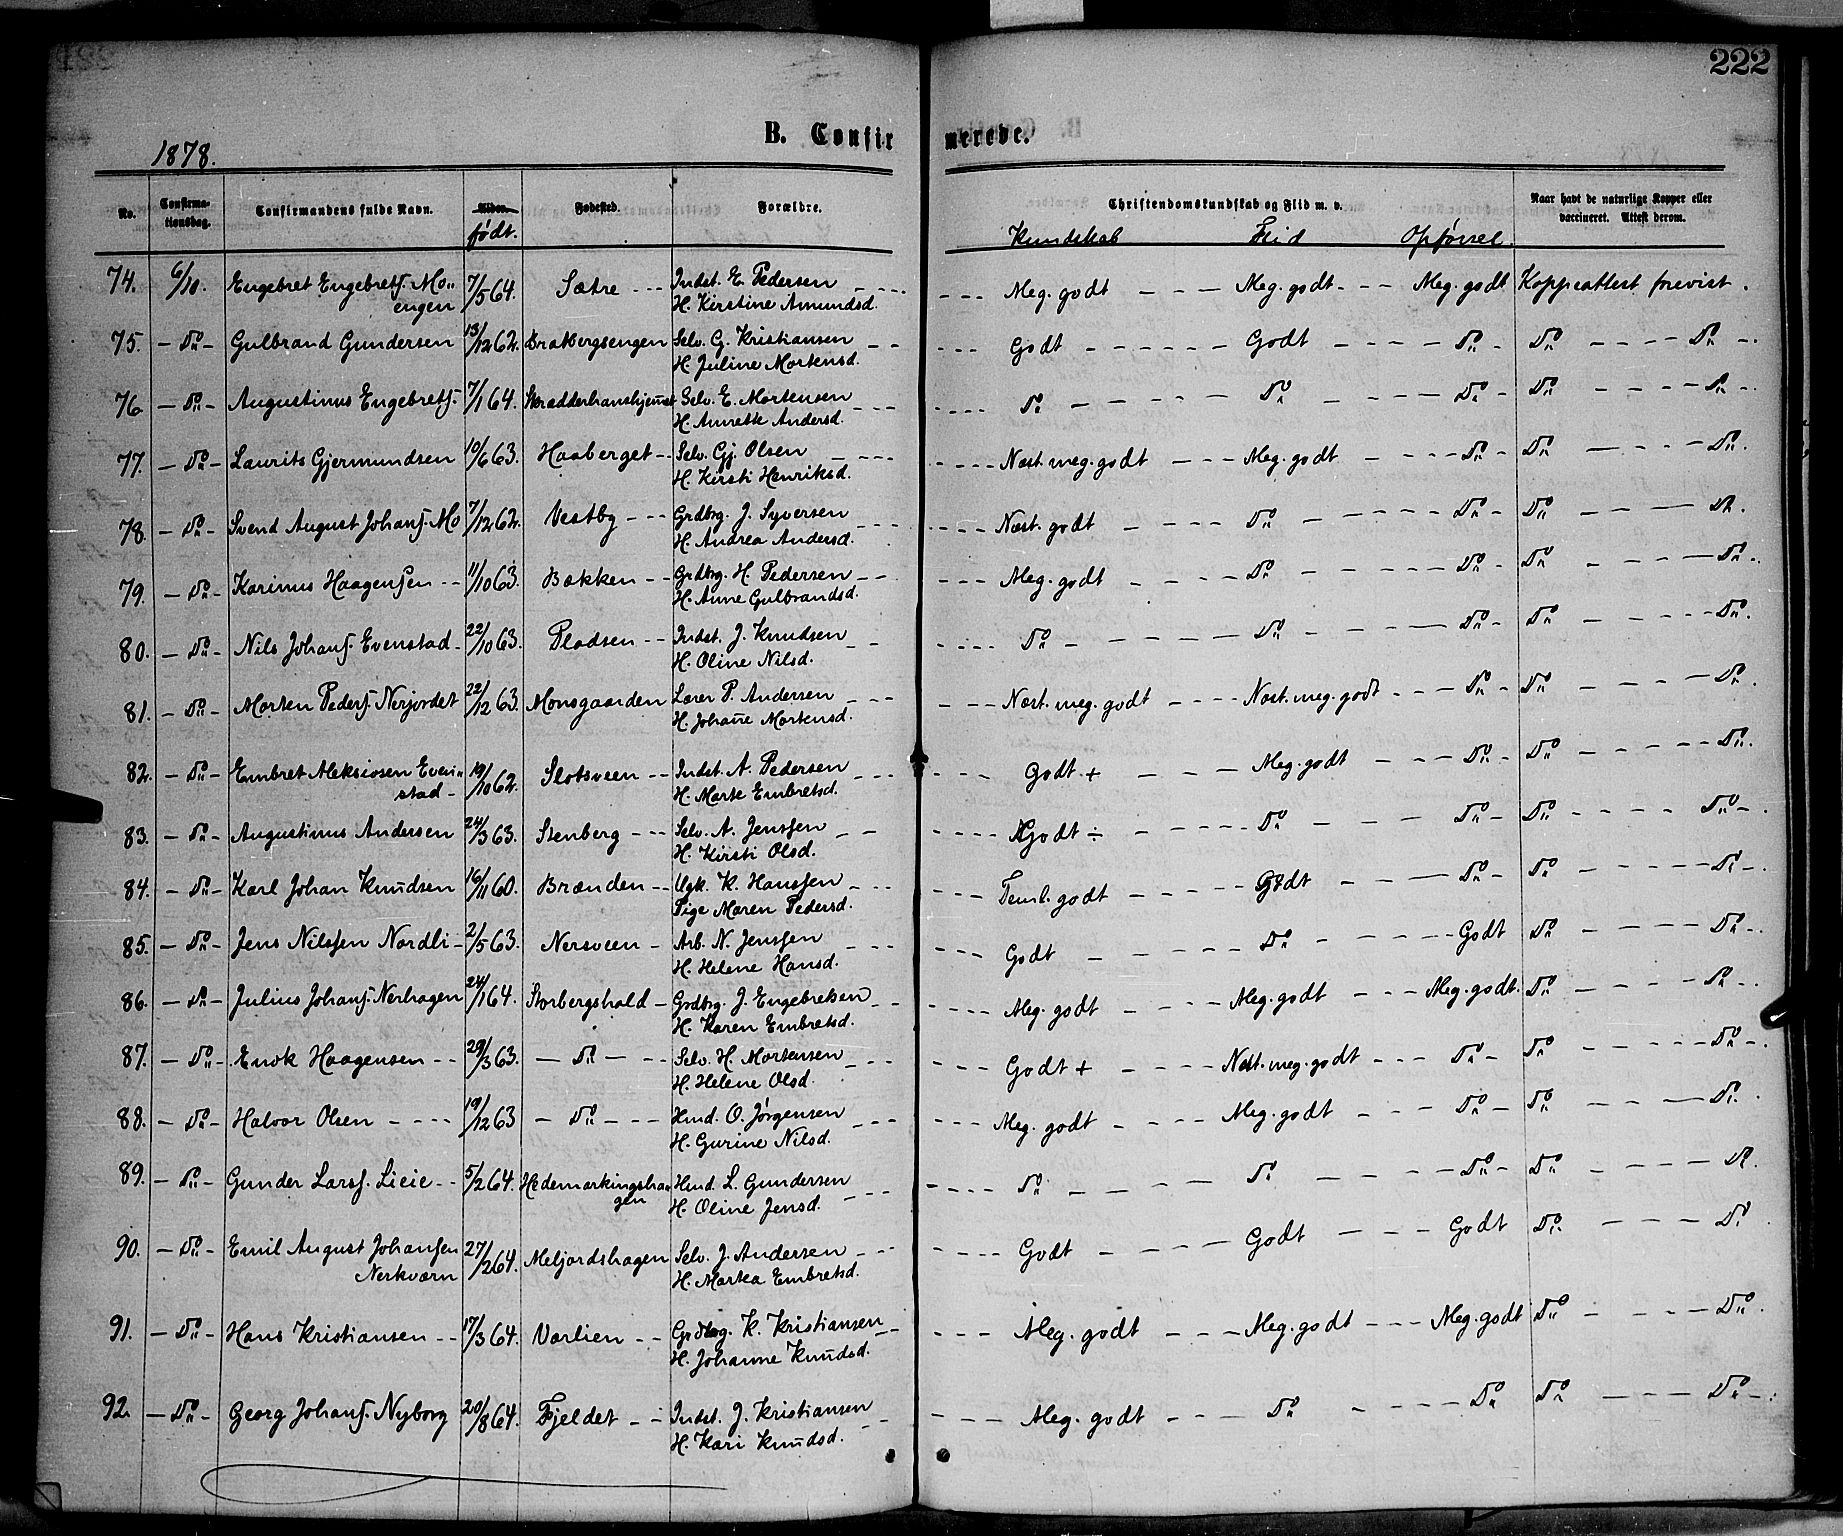 222
1878.
B. Confirmerede.
No.
Confirmationsdag.
Confirmandens fulde Navn.
Alder.
født.
Fødested.
Forældre.
Christendomskundskab og Flid m. v.
Kundskab Flid Opførsel.
Naar havt de naturlige Kopper eller
vaccineret. Attest derom.
74. 6/10. Engebret Engebretſ. Mo„ 7/5 64. Sætre --- Indst. E. Pedersen ---- Meg. godt --- Meg. godt --- Meg. godt Koppeattest frevist.
engen H. Kirstine Amundsd.
75. - Do - Gulbrand Gundersen 13/12 62. Bratbergsengen Selv. G. Kristiansen -- Godt ------ Godt ---- Do - Do ---- Do -.
H. Juline Mortensd.
76 - Do - Augustinus Engebretſ. 7/1 64. Skradderhanshjemet Selv. E. Mortensen --- Do ----- Do ---- Do - Do ---- Do -.
H. Annette Andersd.
77. - Do - Laurits Gjermundsen 10/6 63. Haaberget -- Selv. Gj. Olsen ---- Næst. meg. godt --- Meg. godt ---- Do - Do ---- Do.
H. Kirsti Henriksd.
78. - Do - Svend August Johanſ. Mo 7/12 62. Vestby --- Grdbrg. J. Syversen ---- Næst. godt ---- Do ---- Do - Do ---- Do.
H. Andrea Andersd.
79. - Do - Karinus Haagenſen -- 11/10 63. Bækken -- Grdbrg. H. Pedersen -- Meg. godt ---- Do ---- Do - Do ---- Do -.
H. Anne Gulbrandsd.
80. - Do - Nils Johanſ. Evenstad - 22/10 63. Pladsen -- Indst. J. Knudsen -- Do ----- Do ---- Do - Do ---- Do.
H. Oline Nilsd.
81. - Do - Morten Pederſ. Nerjordet 22/12 63. Monsgaarden Lærer P. Andersen --- Næst. meg. godt ---- Næst. meg. godt --- Do - Do ---- Do.
H. Johanne Mortensd.
82. - Do - Embret Aleksiosen Even„ 19/10 62. Slotsveen -- Indst. A. Pedersen --- Godt + ---- Meg. godt --- Do - Do ---- Do.
stad - H. Marte Embretsd.
83. - Do - Augustinus Andersen 24/3 63. Stenberg --- Selv. A. Jensſen -- Godt ÷ ---- Do ---- Do - Do ---- Do -.
H. Kirsti Olsd.
84. - Do - Karl Johan Knudsen 16/11 60. Brænden -- Ugk. K. Hansſen --- Teml. godt ---- Godt ---- Do - Do ---- Do -.
Pige Maren Pedersd.
85. - Do - Jens Nilsſen Nordli - 2/5 63. Nersveen - Arb. N. Jensſen --- Godt ----- Do ---- Godt Do ---- Do -.
H. Helene Hansd.
86. - Do - Julius Johanſ. Nerhagen 24/1 64. Storbergshold - Grdbrg. J. Engebretsen -- Meg. godt ---- Meg. godt --- Meg. godt. Do ---- Do -.
H. Karen Embretsd.
87. - Do - Enok Haagensen -- 29/3 63. - Do --- Selv. H. Mortensen --- Godt + ---- Næst. meg. godt --- Do - Do ---- Do -.
H. Helene Olsd.
88. - Do - Halvor Olsen ---- 19/12 63 - Do --- Hmd. O. Jørgensen --- Meg. godt ---- Meg. godt --- Do - Do ---- Do.
H. Gurine Nilsd.
89. - Do - Gunder Larsſ. Lieie -- 5/2 64. Hedemarkingsha„ Hmd. L. Gundersen --- Do ----- Do ---- Do - Do ---- Do.
gen H. Oline Jensd.
90. - Do - Emil August Johanſen 27/2 64. Meljordshagen Selv. J. Andersen --- Godt ---- Godt --- Godt Do ---- Do.
Nerkværn H. Martea Embretsd.
91. - Do - Hans Kristiansen -- 17/3 64. Vorlien -- Grdbrg. K. Kristiansen -- Meg. godt --- Meg. godt --- Meg. godt Do ---- Do.
H. Johanne Knudsd.
92. - Do - Georg Johanſ. Nyborg 20/8 64. Fjeldet -- Indst. J. Kristiansen - Meg. godt --- Do ---- Do Do ---- Do -.
H. Kari Knudsd.